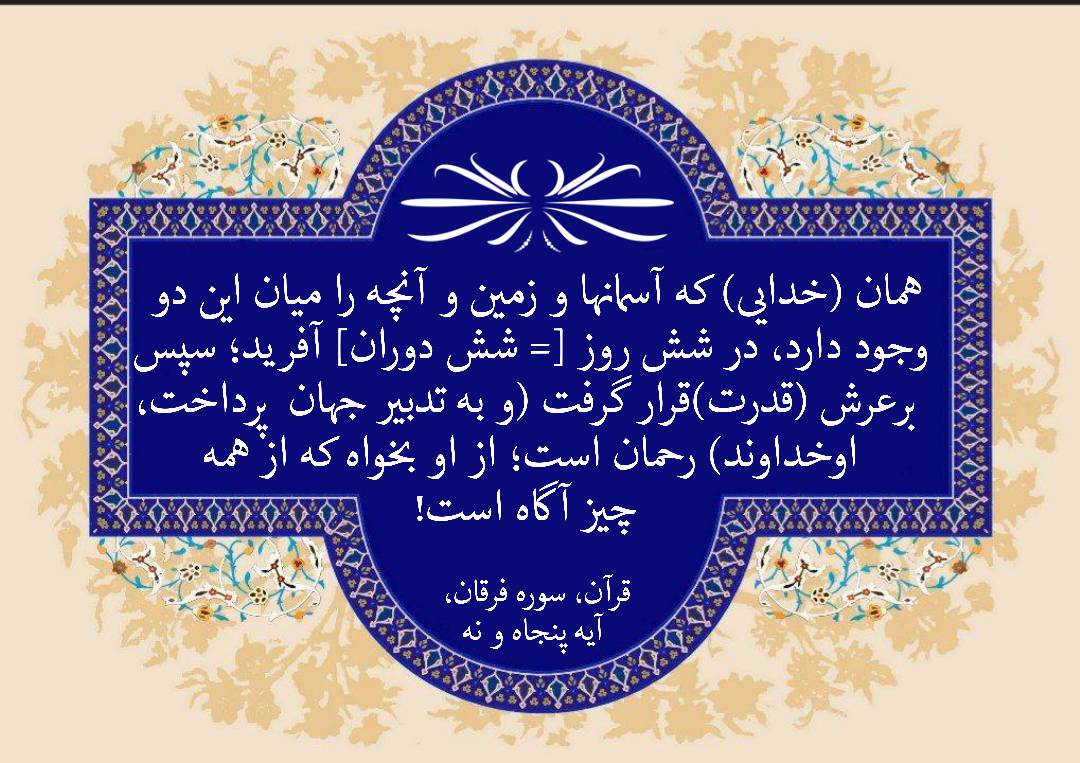 همان (خدایی) که آسمانها و زمین و آنچه را میان این دو
وجود دارد، در شش روز [= شش دوران] آفرید؛ سپس
برعرش (قدرت)قرار گرفت (و به تدبیر جهان پرداخت،
اوخداوند) رحمان است؛ از او بخواه که از همه
چیز آگاه است!
قرآن، سوره فرقان،
آیه پنجاه و نه